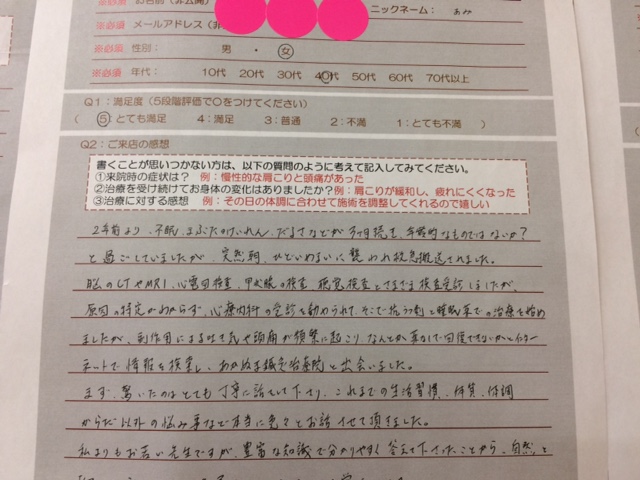 ※必須 お名前（非公開）
ニックネーム： あみ
※必須 メールアドレス（非
※必須 性別： 男 ・ 女
※必須 年代： 10代 20代 30代 40代 50代 60代 70代以上
Q1：満足度（5段階評価で○をつけてください）
（ 5：とても満足 4：満足 3：普通 2：不満 1：とても不満 ）
Q2：ご来店の感想
書くことが思いつかない方は、以下の質問のように考えて記入してみてください。
①来院時の症状は？ 例：慢性的な肩こりと頭痛があった
②治療を受け続けてお身体の変化はありましたか？例：肩こりが緩和し、疲れにくくなった
③治療に対する感想 例：その日の体調に合わせて施術を調整してくれるので嬉しい
2年前より、不眠、まぶたのけいれん、だるさなどが3ヶ月続き、年齢的なものではないか？
と過ごしていましたが、突然朝、ひどいめまいに襲われ救急搬送されました。
脳のCTやMRI、心電図検査、甲状腺の検査、聴覚検査とさまざま検査受診しましたが、
原因の特定がわからず、心療内科の受診を勧められて、そこで抗うつ剤と睡眠薬での治療を始め
ましたが、副作用による吐き気や頭痛が頻繁に起こり、なんとか薬なしで回復できないかとインター
ネットで情報を検索し、あかぬき鍼灸治療院と出会いました。
まず、驚いたのはとても丁寧に話をして下さり、これまでの生活習慣、体質、体調
からだ以外の悩み事など本当に色々とお話させて頂きました。
私よりもお若い先生ですが、豊富な知識で分かりやすく答えて下さったことから、自然と